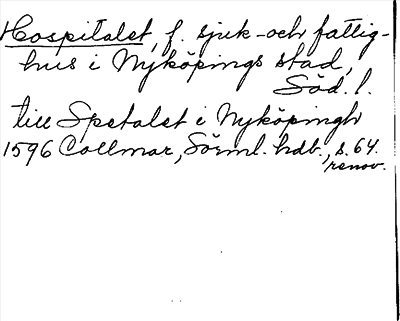 Hospitalet, f. sjuk- och fattig-
hus i Nyköpings stad,
Söd. l.
till Spetalet i Nyköpingh
1596 Collmar, Sörml. hdb., s. 64.
renov.